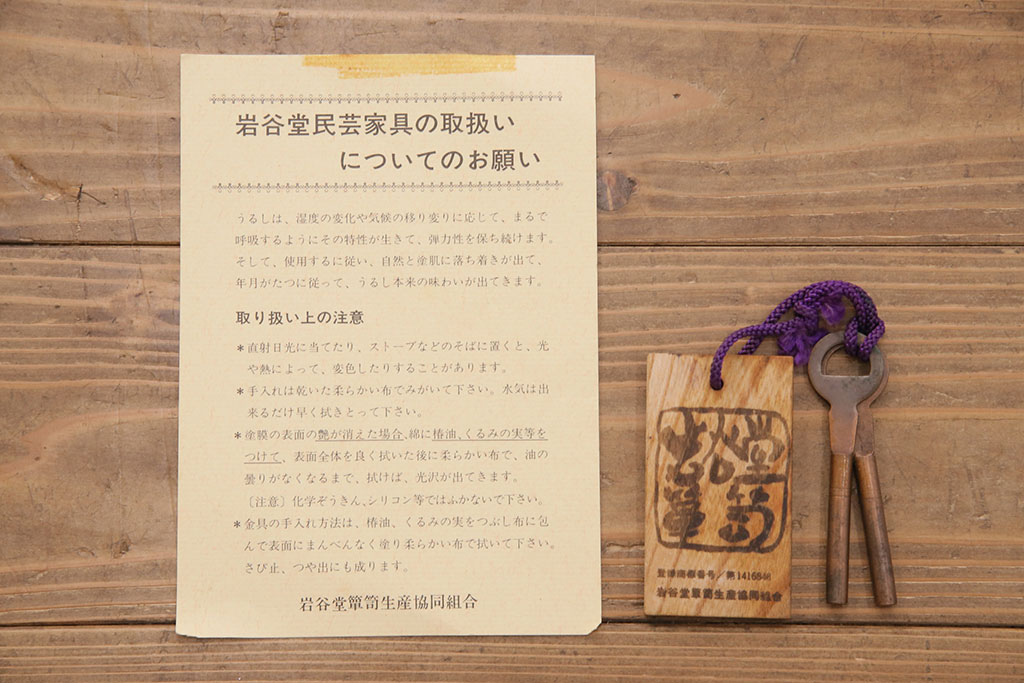 岩谷堂民芸家具の取扱い
についてのお願い
うるしは、湿度の変化や気候の移り変りに応じて、まるで
呼吸するようにその特性が生きて、弾力性を保ち続けます。
そして、使用するに従い、自然と塗肌に落ち着きが出て、
年月がたつに従って、うるし本来の味わいが出てきます。
取り扱い上の注意
＊直射日光に当てたり、ストーブなどのそばに置くと、光
や熱によって、変色したりすることがあります。
＊手入れは乾いた柔らかい布でみがいて下さい。水気は出
来るだけ早く拭きとって下さい。
＊塗膜の表面の艶が消えた場合、綿に椿油、くるみの実等を
つけて、表面全体を良く拭いた後に柔らかい布で、油の
曇りがなくなるまで、拭けば、光沢が出てきます。
〔注意〕化学ぞうきん、シリコン等ではふかないで下さい。
＊金具の手入れ方法は、椿油、くるみの実をつぶし布に包
んで表面にまんべんなく塗り柔らかい布で拭いて下さい。
さび止、つや出にも成ります。
岩谷堂簞笥生産協同組合
岩谷堂
簞笥
登録商標番号／第1416846
岩谷堂簞笥生産協同組合